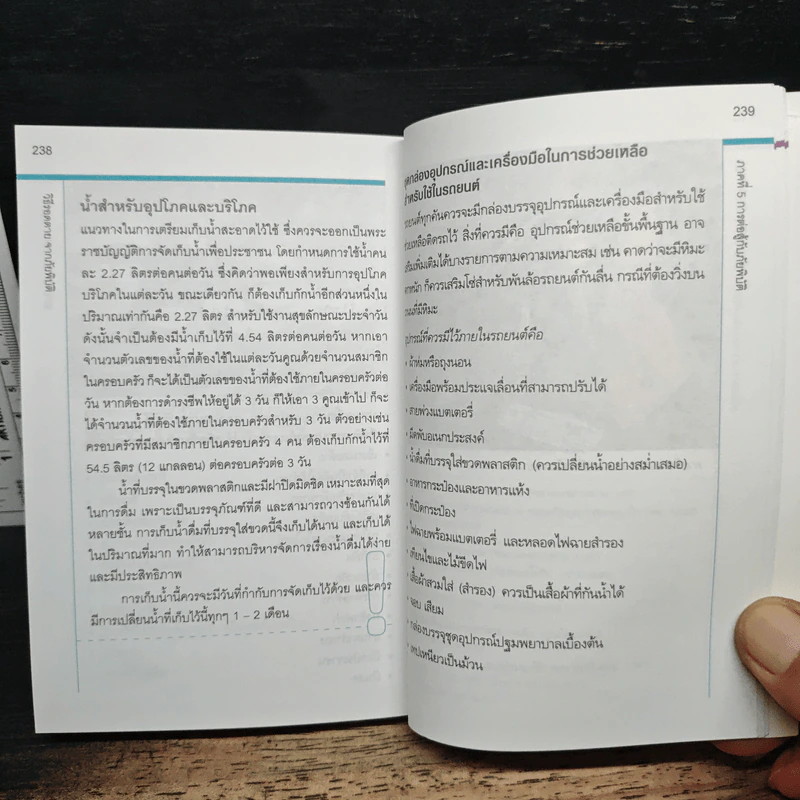 238
วิธีรอดตาย จากภัยพิบัติ
น้ำสำหรับอุปโภคและบริโภค
แนวทางในการเตรียมเก็บน้ำสะอาดไว้ใช้ ซึ่งควรจะออกเป็นพระ
ราชบัญญัติการจัดเก็บน้ำเพื่อประชาชน โดยกำหนดการใช้น้ำคน
ละ 2.27 ลิตรต่อคนต่อวัน ซึ่งคิดว่าพอเพียงสำหรับการอุปโภค
บริโภคในแต่ละวัน ขณะเดียวกัน ก็ต้องเก็บกักน้ำอีกส่วนหนึ่งใน
ปริมาณเท่ากันคือ 2.27 ลิตร สำหรับใช้งานสุขลักษณะประจำวัน
ดังนั้นจำเป็นต้องมีน้ำเก็บไว้ที่ 4.54 ลิตรต่อคนต่อวัน หากเอา
จำนวนตัวเลขของน้ำที่ต้องใช้ในแต่ละวันคูณด้วยจำนวนสมาชิก
ในครอบครัว ก็จะได้เป็นตัวเลขของน้ำที่ต้องใช้ภายในครอบครัวต่อ
วัน หากต้องการดำรงชีพให้อยู่ได้ 3 วัน ก็ให้เอา 3 คูณเข้าไป ก็จะ
ได้จำนวนน้ำที่ต้องใช้ภายในครอบครัวสำหรับ 3 วัน ตัวอย่างเช่น
ครอบครัวที่มีสมาชิกภายในครอบครัว 4 คน ต้องเก็บกักน้ำไว้ที่
54.5 ลิตร (12 แกลลอน) ต่อครอบครัวต่อ 3 วัน
น้ำที่บรรจุในขวดพลาสติกและมีฝาปิดมิดชิด เหมาะสมที่สุด
ในการดื่ม เพราะเป็นบรรจุภัณฑ์ที่ดี และสามารถวางซ้อนกันได้
หลายชั้น การเก็บน้ำดื่มที่บรรจุใส่ขวดนี้จึงเก็บได้นาน และเก็บได้
ในปริมาณที่มาก ทำให้สามารถบริหารจัดการเรื่องน้ำดื่มได้ง่าย
และมีประสิทธิภาพ
การเก็บน้ำนี้ควรจะมีวันที่กำกับการจัดเก็บไว้ด้วย และควร
มีการเปลี่ยนน้ำที่เก็บไว้นี้ทุกๆ 1 – 2 เดือน
239
ภาคที่ 5 การต่อสู้กับภัยพิบัติ
กล่องอุปกรณ์และเครื่องมือในการช่วยเหลือ
สำหรับใช้ในรถยนต์
ทุกคันควรจะมีกล่องบรรจุอุปกรณ์และเครื่องมือสำหรับใช้
ช่วยเหลือติดรถไว้ สิ่งที่ควรมีคือ อุปกรณ์ช่วยเหลือขั้นพื้นฐาน อาจ
เพิ่มเติมได้บางรายการตามความเหมาะสม เช่น คาดว่าจะมีหิมะ
ตกหนัก ก็ควรเสริมโซ่สำหรับพันล้อรถยนต์กันลื่น กรณีที่ต้องวิ่งบน
ถนนที่มีหิมะ
อุปกรณ์ที่ควรมีไว้ภายในรถยนต์คือ
• ผ้าห่มหรือถุงนอน
• เครื่องมือพร้อมประแจเลื่อนที่สามารถปรับได้
• สายพ่วงแบตเตอรี่
• มีดพับอเนกประสงค์
• น้ำดื่มที่บรรจุใส่ขวดพลาสติก (ควรเปลี่ยนน้ำอย่างสม่ำเสมอ)
• อาหารกระป๋องและอาหารแห้ง
• ที่เปิดกระป๋อง
• ไฟฉายพร้อมแบตเตอรี่ และหลอดไฟฉายสำรอง
• เทียนไขและไม้ขีดไฟ
• เสื้อผ้าสวมใส่ (สำรอง) ควรเป็นเสื้อผ้าที่กันน้ำได้
• จอบ เสียม
• กล่องบรรจุชุดอุปกรณ์ปฐมพยาบาลเบื้องต้น
• เทปเหนียวเป็นม้วน